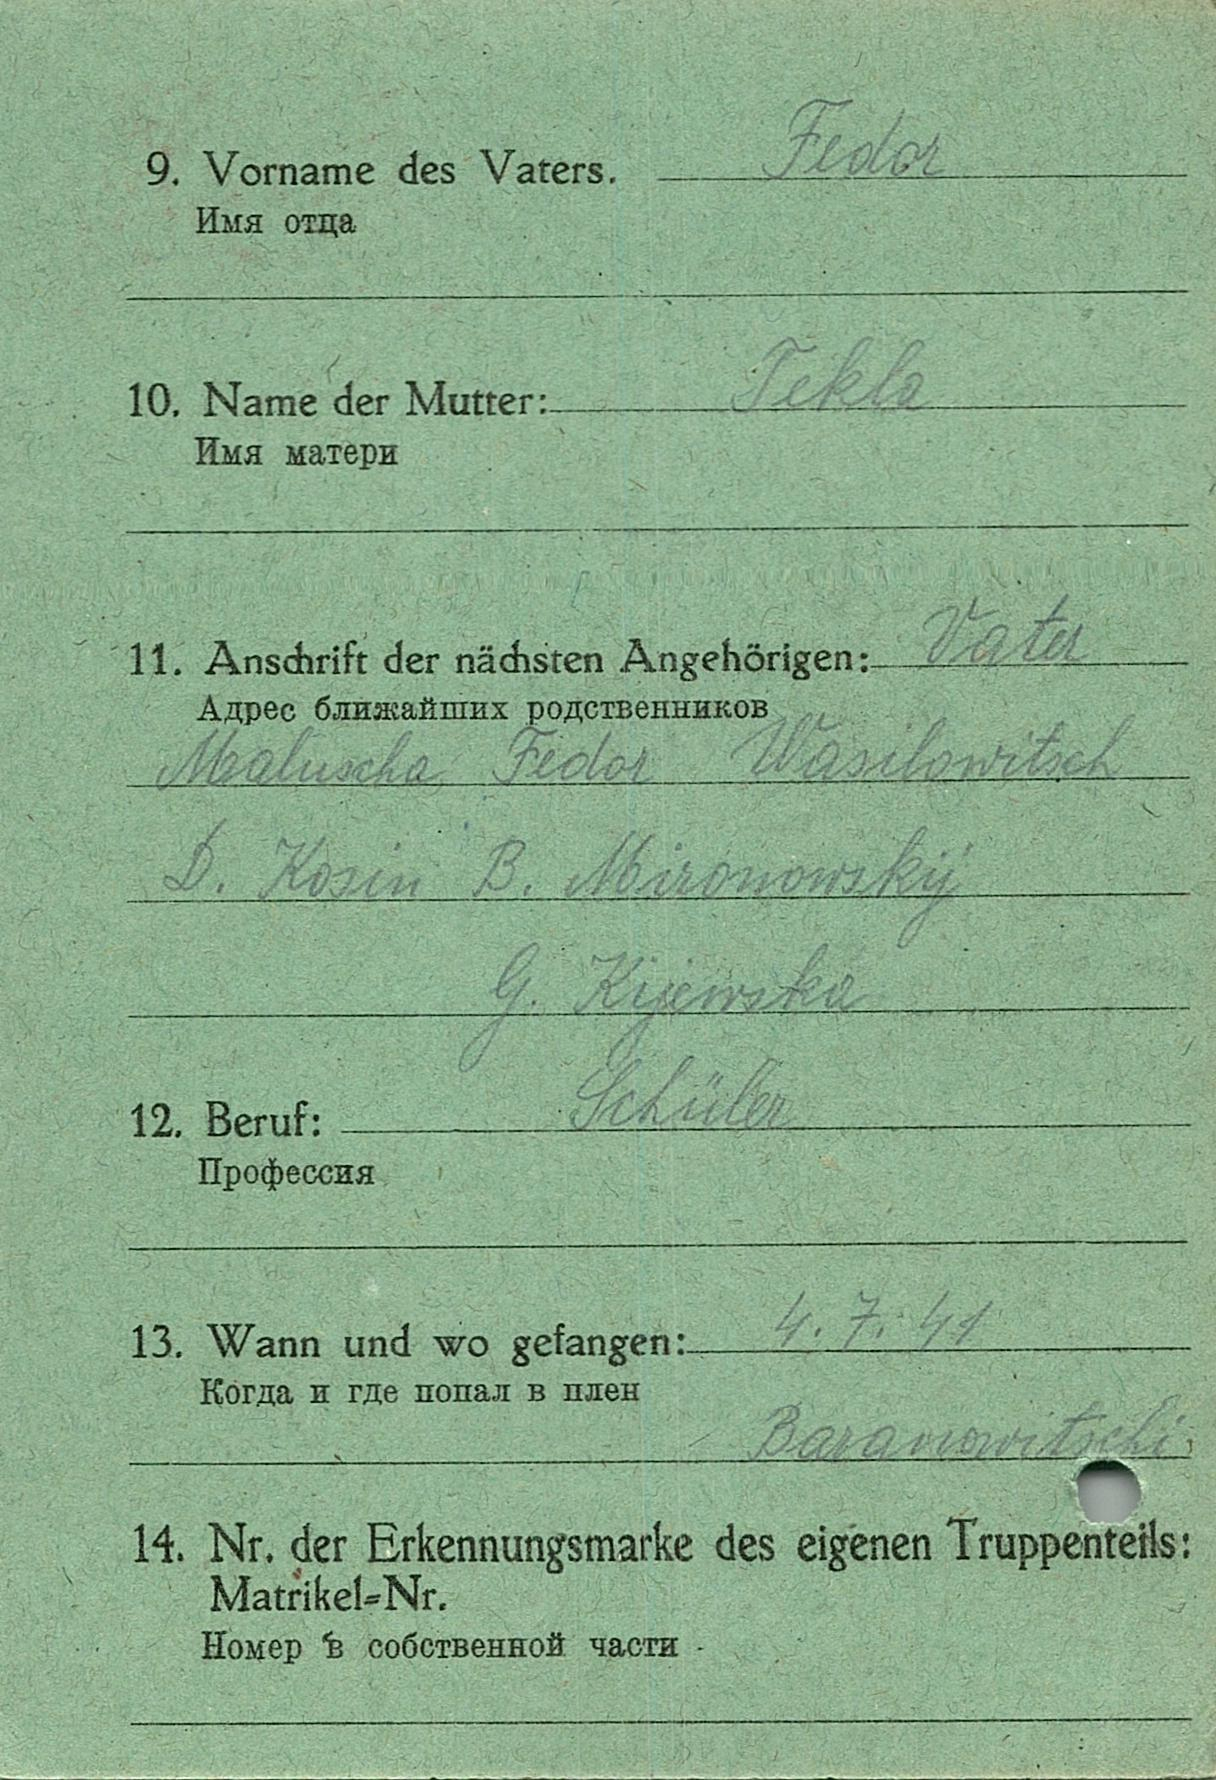 9. Vorname des Vaters. Fedor
Имя отца
10. Name der Mutter: Tekla
Имя матери
11. Anschrift der nächsten Angehörigen: Vater
Адрес ближайших родственников
Maluscha Fedor Wasilowitsch
D. Kosin B. Mironowskij
G. Kijewska
12. Beruf: Schüler
Профессия
13. Wann und wo gefangen: 4. 7. 41
Когда и где попал в плен
Baranowitschi
14. Nr. der Erkennungsmarke des eigenen Truppenteils:
Matrikel=Nr.
Номер в собственной части